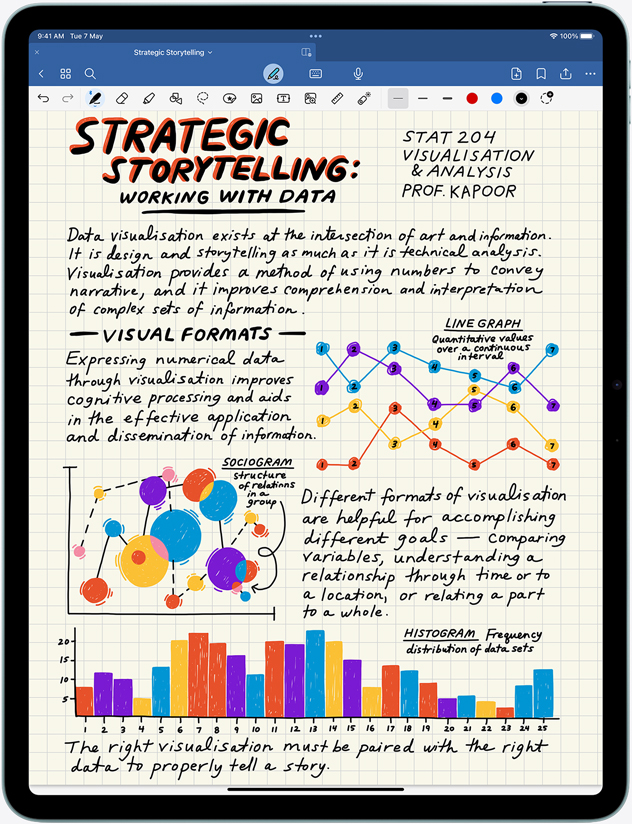 9:41 AM Tue 7 May
100%
Strategic Storytelling
STRATEGIC
STORYTELLING:
WORKING WITH DATA
STAT 204
VISUALISATION
& ANALYSIS
PROF. KAPOOR
Data visualisation exists at the intersection of art and information.
It is design and storytelling as much as it is technical analysis.
Visualisation provides a method of using numbers to convey
narrative, and it improves comprehension and interpretation
of complex sets of information.
VISUAL FORMATS
Expressing numerical data
through visualisation improves
cognitive processing and aids
in the effective application
and dissemination of information.
LINE GRAPH
Quantitative values
over a continuous
interval
1 2 3 4 5 6 7
1 2 3 4 5 6 7
1 2 3 4 5 6 7
1 2 3 4 5 6 7
SOCIOGRAM
Structure
of relations
in a
group
Different formats of visualisation
are helpful for accomplishing
different goals — comparing
variables, understanding a
relationship through time or to
a location, or relating a part
to a whole.
HISTOGRAM Frequency
distribution of data sets
20
15
10
5
1 2 3 4 5 6 7 8 9 10 11 12 13 14 15 16 17 18 19 20 21 22 23 24 25
The right visualisation must be paired with the right
data to properly tell a story.